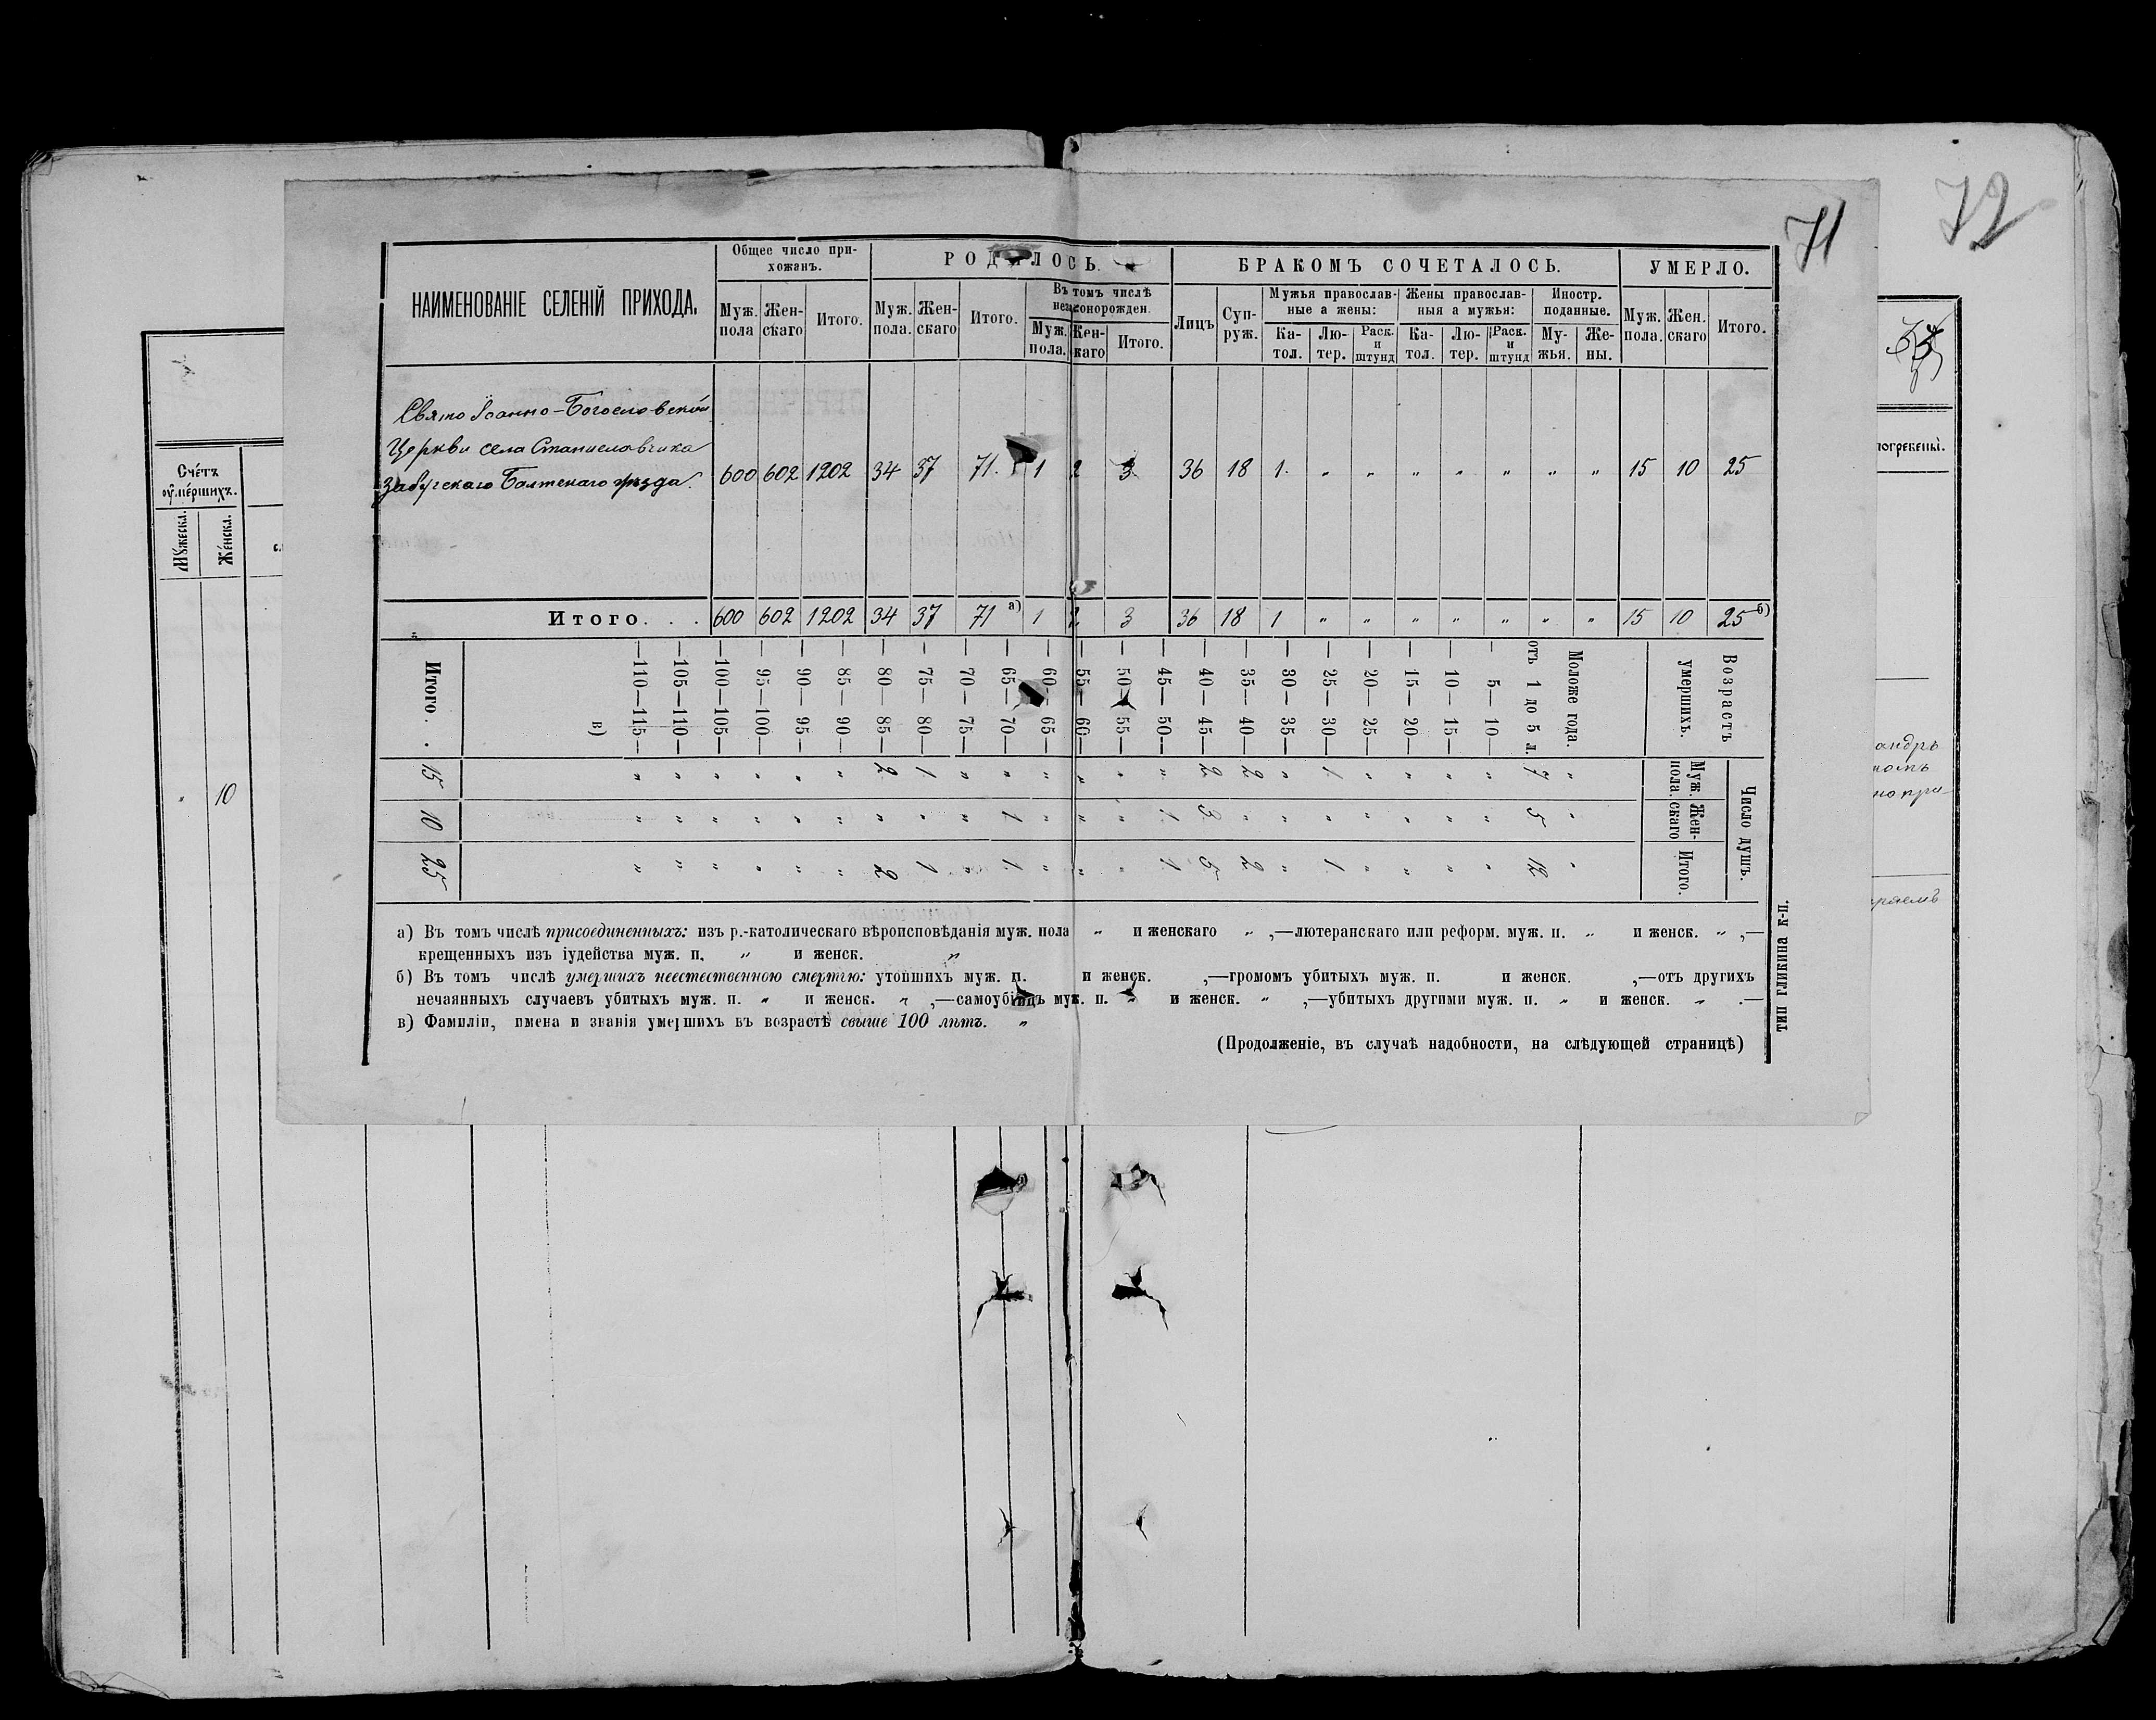 72
71
НАИМЕНОВАНІЕ СЕЛЕНІЙ ПРИХОДА.
Общее число при-
хожанъ.
Муж. пола
Жен-скаго
Итого.
РОДИЛОСЬ.
Муж. пола.
Жен-скаго
Итого.
Въ томъ числѣ
незаконорожден.
Муж. пола.
Жен-скаго
Итого.
БРАКОМЪ СОЧЕТАЛОСЬ.
Лицъ
Суп-руж.
Мужья православ-
ные а жены:
Ка-тол.
Лю-тер.
Раск. и штунд
Жены православ-
ныя а мужья:
Ка-тол.
Лю-тер.
Раск. и штунд
Иностр.
поданные.
Му-жья.
Же-ны.
УМЕРЛО.
Муж. пола.
Жен. скаго
Итого.
Свято Іоанно-Богословской
Церкви села Станиславчика
Забугскаго Балтскаго уѣзда.
600 602 1202 34 37 71. 1 2 3 36 18 1. „ „ „ „ „ „ „ 15 10 25
Итого. . . 600 602 1202 34 37 71 а) 1 2 3 36 18 1 „ „ „ „ „ „ „ 15 10 25 б)
Возрастъ
умершихъ.
Число душъ.
Муж. пола.
Жен-скаго
Итого.
Моложе года. „ „ „
отъ 1 до 5 л. 7 5 12
— 5—10— „ „ „
— 10—15— „ „ „
— 15—20— „ „ „
— 20—25— „ „ „
— 25—30— 1 „ 1
— 30—35— „ „ „
— 35—40— 2 „ 2
— 40—45— 2 3 5
— 45—50— „ 1 1
— 50—55— „ „ „
— 55—60— „ „ „
— 60—65— „ „ „
— 65—70— „ 1 1
— 70—75— „ „ „
— 75—80— 1 „ 1
— 80—85— 2 „ 2
— 85—90— „ „ „
— 90—95— „ „ „
— 95—100— „ „ „
—100—105— „ „ „
—105—110— „ „ „
—110—115— „ „ „
в)
Итого. . 15 10 25
а) Въ томъ числѣ присоединенныхъ: изъ р.-католическаго вѣроисповѣданія муж. пола „ и женскаго „ ,—лютеранскаго или реформ. муж. п. „ и женск. „ ,—
крещенныхъ изъ іудейства муж. п. „ и женск. „
б) Въ томъ числѣ умершихъ неестественною смертію: утопшихъ муж. п. и женск. ,—громомъ убитыхъ муж. п. и женск. ,—отъ другихъ
нечаянныхъ случаевъ убитыхъ муж. п. „ и женск. „ ,—самоубійцъ муж. п. „ и женск. „ ,—убитыхъ другими муж. п. „ и женск. „ .—
в) Фамиліи, имена и званія умершихъ въ возрастѣ свыше 100 лѣтъ. „
(Продолженіе, въ случаѣ надобности, на слѣдующей страницѣ)
ТИП ГЛИКИНА К-П.
Сче́тъ
оу҆ме́ршихъ.
Мꙋ́жескл.
Же́нскл.
„ 10
погребены̀.